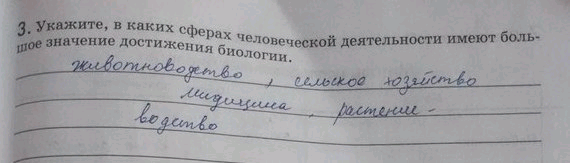 3. Укажите, в каких сферах человеческой деятельности имеют боль-
шое значение достижения биологии.
животноводство, сельское хозяйство
мидицина, растение-
водство